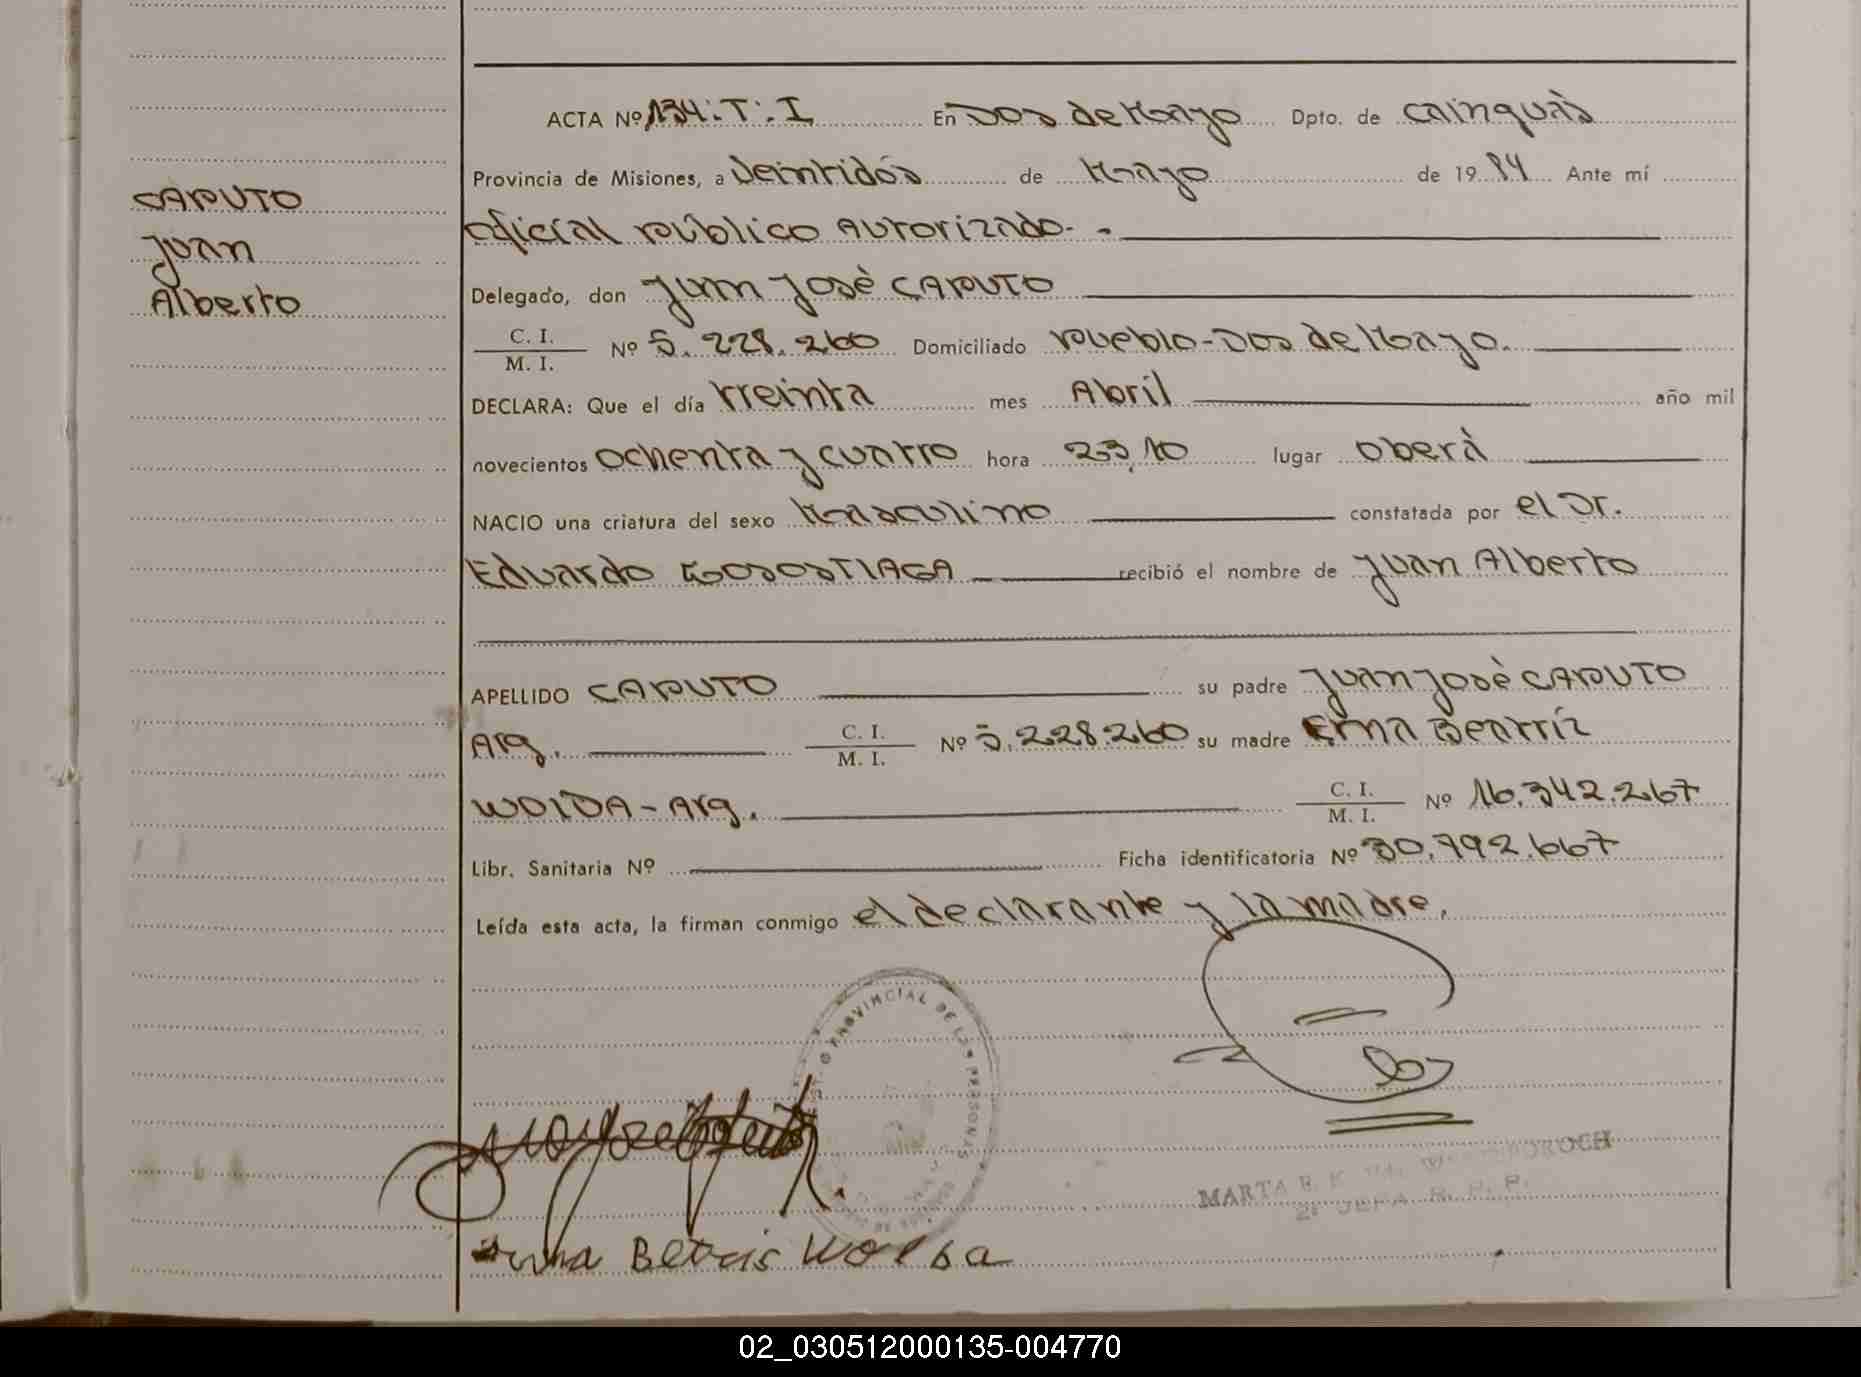 CAPUTO
Juan
Alberto
ACTA Nº 134:T:I En Dos de Mayo Dpto. de Cainguàs
Provincia de Misiones, a Veintidós de Mayo de 1984 Ante mí
oficial público Autorizado.-
Delegado, don Juan Josè CAPUTO
C. I.
M. I. Nº 5.228.260 Domiciliado Pueblo-Dos de Mayo.
DECLARA: Que el día treinta mes Abril año mil
novecientos ochenta y cuatro hora 23,10 lugar Oberà
NACIO una criatura del sexo Masculino constatada por el Dr.
Eduardo GOSOSTIAGA recibió el nombre de Juan Alberto
APELLIDO CAPUTO su padre Juan Josè CAPUTO
Arg. C. I.
M. I. Nº 5.228.260 su madre Erna Beatríz
WOIDA - Arg. C. I.
M. I. Nº 16.342.267
Libr. Sanitaria Nº Ficha identificatoria Nº 30.792.667
Leída esta acta, la firman conmigo el declarante y la madre.
PROVINCIAL DE LAS PERSONAS
MARTA E.
2ª JEFA R. P. P.
02_030512000135-004770